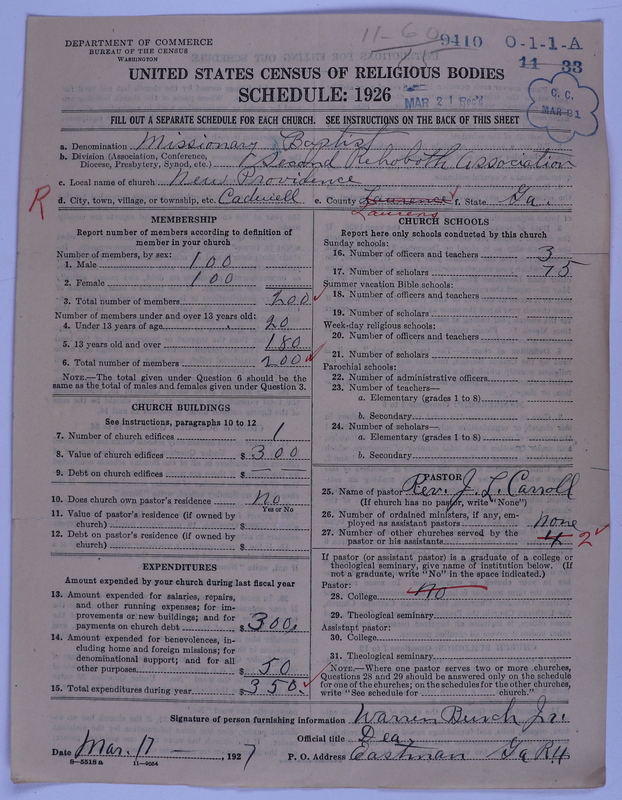 11-60
9410 0-1-1-A
11 33
DEPARTMENT OF COMMERCE
BUREAU OF THE CENSUS
WASHINGTON
UNITED STATES CENSUS OF RELIGIOUS BODIES
SCHEDULE: 1926
MAR 21 Rec'd
C. C.
MAR 31
FILL OUT A SEPARATE SCHEDULE FOR EACH CHURCH. SEE INSTRUCTIONS ON THE BACK OF THIS SHEET
a. Denomination Missionary Baptist
b. Division (Association, Conference, Diocese, Presbytery, Synod, etc.) Second Rehoboth Association
c. Local name of church New Providence
R d. City, town, village, or township, etc. Cadwell e. County Laurence f. State Ga.
Laurens
MEMBERSHIP
Report number of members according to definition of
member in your church
Number of members, by sex:
1. Male 100
2. Female 100
3. Total number of members 200
Number of members under and over 13 years old:
4. Under 13 years of age 20
5. 13 years old and over 180
6. Total number of members 200
NOTE.—The total given under Question 6 should be
the same as the total of males and females given under Question 3.
CHURCH BUILDINGS
See instructions, paragraphs 10 to 12
7. Number of church edifices 1
8. Value of church edifices $ 300
9. Debt on church edifices $ — —
10. Does church own pastor's residence No
Yes or No
11. Value of pastor's residence (if owned by
church) $
12. Debt on pastor's residence (if owned by
church) $
EXPENDITURES
Amount expended by your church during last fiscal year
13. Amount expended for salaries, repairs,
and other running expenses; for im-
provements or new buildings; and for
payments on church debt $ 300
14. Amount expended for benevolences, in-
cluding home and foreign missions; for
denominational support; and for all
other purposes $ 50
15. Total expenditures during year $ 350
CHURCH SCHOOLS
Report here only schools conducted by this church
Sunday schools:
16. Number of officers and teachers 3
17. Number of scholars 75
Summer vacation Bible schools:
18. Number of officers and teachers
19. Number of scholars
Week-day religious schools:
20. Number of officers and teachers
21. Number of scholars
Parochial schools:
22. Number of administrative officers
23. Number of teachers—
a. Elementary (grades 1 to 8)
b. Secondary
24. Number of scholars—
a. Elementary (grades 1 to 8)
b. Secondary
PASTOR
25. Name of pastor Rev. J. L. Carroll
(If church has no pastor, write "None")
26. Number of ordained ministers, if any, em-
ployed as assistant pastors none
27. Number of other churches served by the
pastor or his assistants 4 2
If pastor (or assistant pastor) is a graduate of a college or
theological seminary, give name of institution below. (If
not a graduate, write "No" in the space indicated.)
Pastor:
28. College no
29. Theological seminary
Assistant pastor:
30. College
31. Theological seminary
NOTE.—Where one pastor serves two or more churches,
Questions 28 and 29 should be answered only on the schedule
for one of the churches; on the schedules for the other churches,
write "See schedule for church."
Signature of person furnishing information Warren Burch Jr.
Official title Dea.
Date Mar. 17 —, 1927 P. O. Address Eastman Ga R4
8—5518 a 11—9054